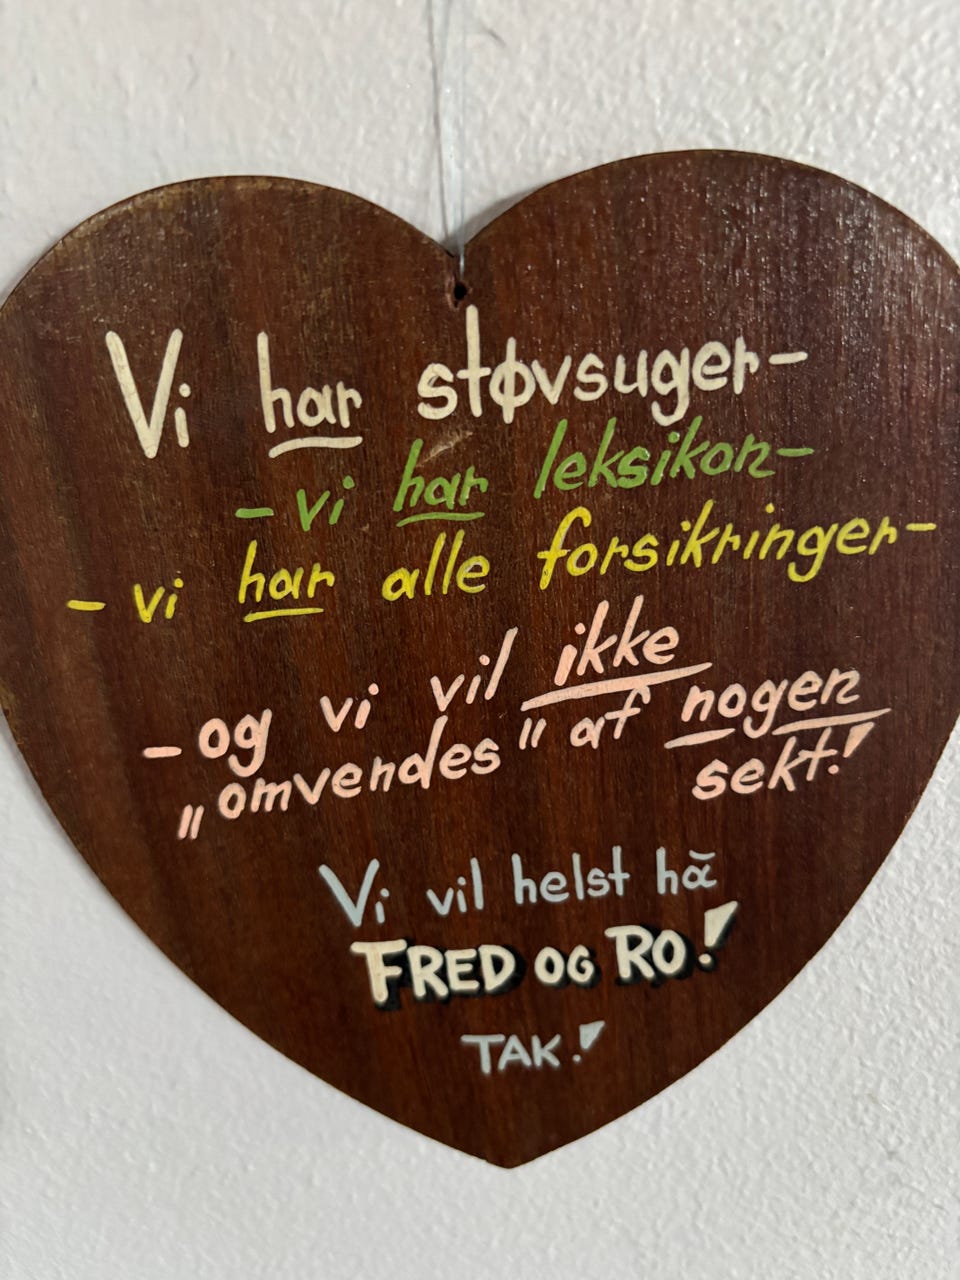 Vi har støvsuger-
- vi har leksikon-
- vi har alle forsikringer-
- og vi vil ikke
„omvendes" af nogen
sekt!
Vi vil helst hă
FRED OG RO!
TAK!